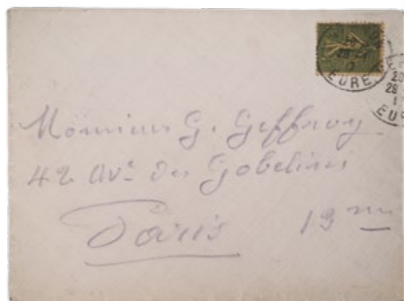 EURE
20
28
1
EU
Monsieur G. Geffroy
42 Av.e des Gobelins
Paris 13me